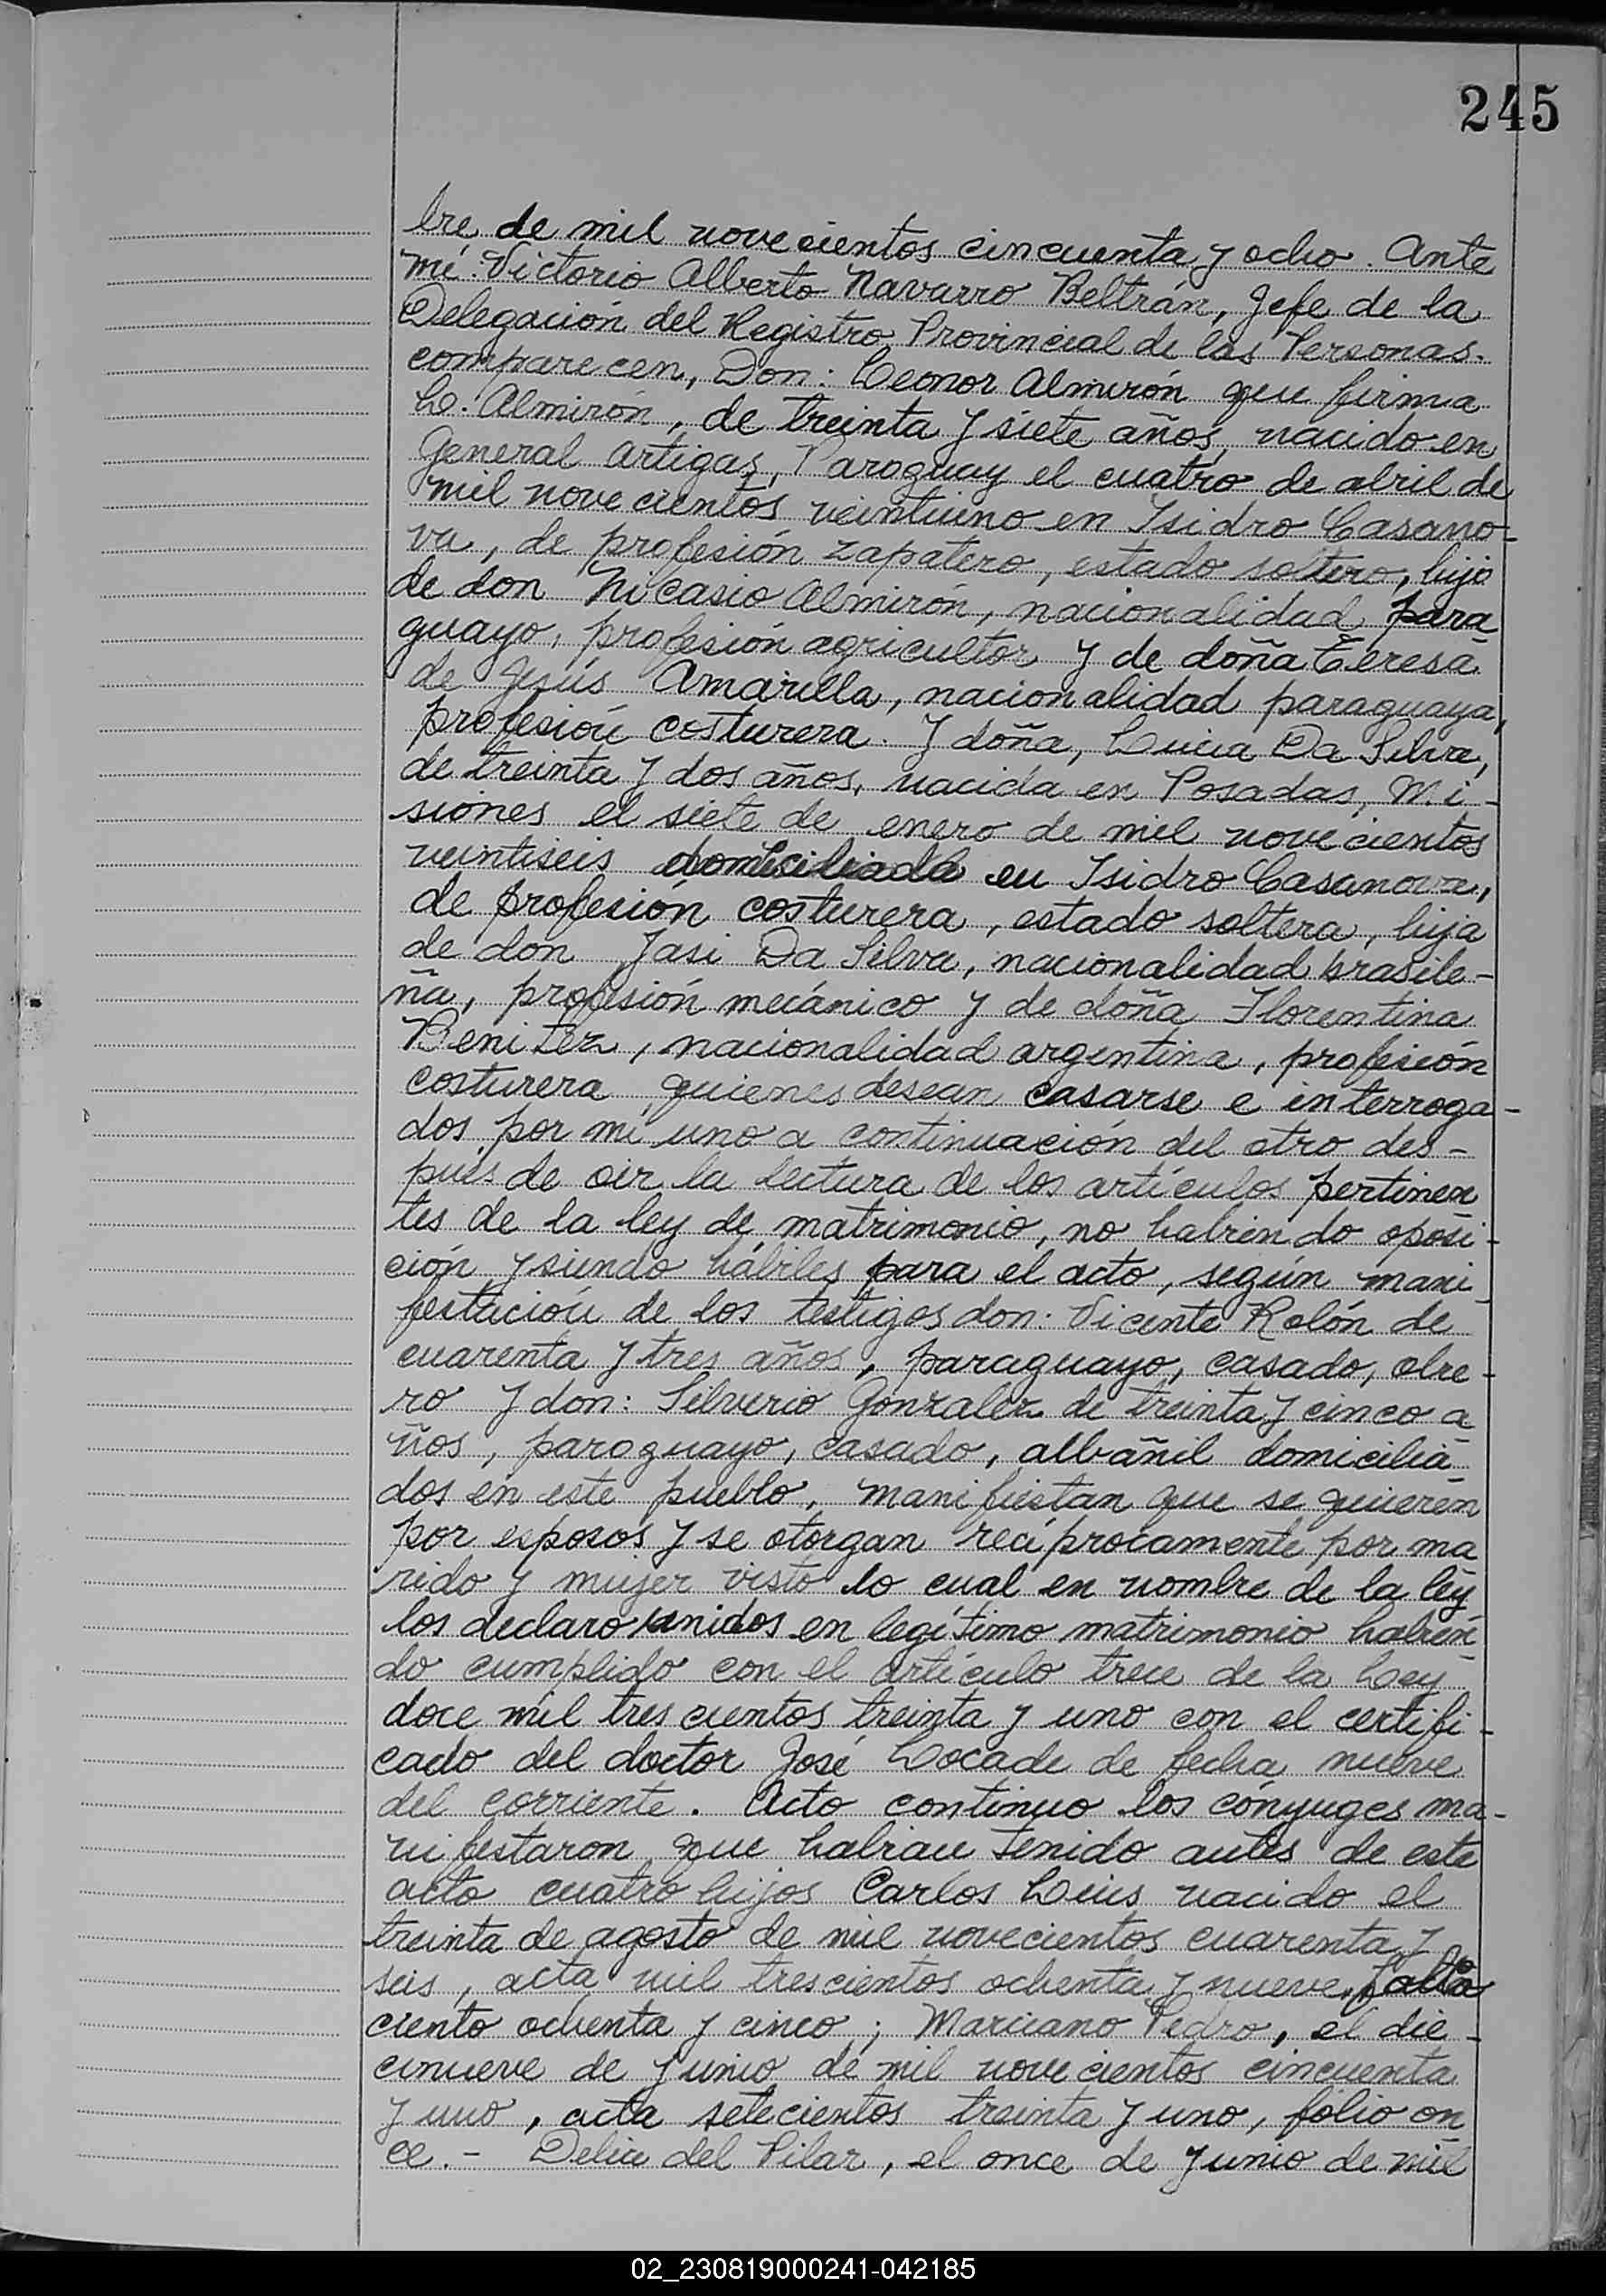 245
bre de mil novecientos cincuenta y ocho. Ante
mí. Victorio Alberto Navarro Beltrán, Jefe de la
Delegación del Registro Provincial de las Personas.
comparecen, Don: Leonor Almirón que firma
L. Almirón, de treinta y siete años, nacido en
General Artigas, Paraguay el cuatro de abril de
mil novecientos veintiuno en Isidro Casano-
va, de profesión zapatero, estado soltero, hijo
de don Nicasio Almirón, nacionalidad para-
guayo, profesión agricultor y de doña Teresa
de Jesús Amarilla, nacionalidad paraguaya,
profesión costurera. Y doña, Lucia Da Silva,
de treinta y dos años, nacida en Posadas, Mi-
siones el siete de enero de mil novecientos
veintiseis domiciliada en Isidro Casanova,
de profesión costurera, estado soltera, hija
de don Jasi Da Silva, nacionalidad brasile-
ña, profesión mecánico y de doña Florentina
Benitez, nacionalidad argentina, profesión
costurera, quienes desean casarse e interroga-
dos por mi uno a continuación del otro des-
pués de oir la lectura de los artículos pertinen
tes de la ley de matrimonio, no habiendo oposi-
ción y siendo hábiles para el acto, según mani-
festación de los testigos don: Vicente Rolón de
cuarenta y tres años, paraguayo, casado, obre-
ro y don: Silverio Gonzalez de treinta y cinco a
ños, paraguayo, casado, albañil domicilia-
dos en este pueblo, manifiestan que se quieren
por esposos y se otorgan recíprocamente por ma
rido y mujer visto lo cual en nombre de la ley
los declaro unidos en legítimo matrimonio habien-
do cumplido con el artículo trece de la Ley
doce mil trescientos treinta y uno con el certifi-
cado del doctor José Locade de fecha nueve
del corriente. Acto continuo los cónyuges ma-
nifestaron que habian tenido antes de este
acto cuatro hijos Carlos Luis nacido el
treinta de agosto de mil novecientos cuarenta y
seis, acta mil trescientos ochenta y nueve, folio
ciento ochenta y cinco; Marciano Pedro, el die-
cinueve de junio de mil novecientos cincuenta
y uno, acta setecientos treinta y uno, folio on-
ce.- Delia del Pilar, el once de junio de mil
02_230819000241-042185